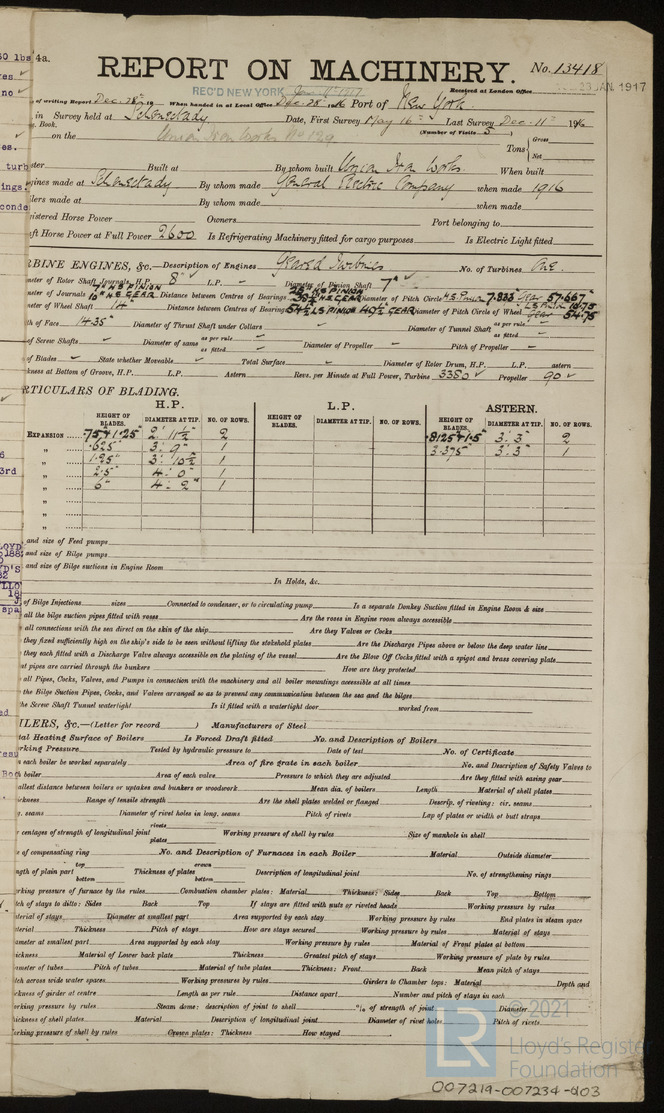 4a.
REPORT ON MACHINERY.
No. 13418
REC'D NEW YORK
Received at London Office
23 JAN. 1917
of writing Report Dec. 28th 19 When handed in at Local Office Dec. 28 1916 Port of New York
in Survey held at Schenectady Date, First Survey May 16th Last Survey Dec. 11th 1916
Book. (Number of Visits 5)
on the Union Iron Works No 129
Tons Gross
Net
Built at By whom built Union Iron Works When built
Engines made at Schenectady By whom made General Electric Company when made 1916
Boilers made at By whom made when made
Registered Horse Power Owners Port belonging to
Shaft Horse Power at Full Power 2600 Is Refrigerating Machinery fitted for cargo purposes Is Electric Light fitted
TURBINE ENGINES, &c.—Description of Engines Geared Turbines No. of Turbines One.
Diameter of Rotor Shaft Journals, H.P. 8" L.P. - Diameter of Pinion Shaft 7"
Diameter of Journals Distance between Centres of Bearings Diameter of Pitch Circle H.S. Pinion 7.833" Gear 57.667"
Diameter of Wheel Shaft 14" Distance between Centres of Bearings Diameter of Pitch Circle of Wheel 54.75
Width of Face Diameter of Thrust Shaft under Collars - Diameter of Tunnel Shaft as per rule
as fitted
of Screw Shafts - Diameter of same as per rule
as fitted Diameter of Propeller - Pitch of Propeller -
of Blades - State whether Moveable - Total Surface - Diameter of Rotor Drum, H.P. L.P. astern
Thickness at Bottom of Groove, H.P. L.P. Astern Revs. per Minute at Full Power, Turbine 3350 Propeller 90
PARTICULARS OF BLADING.
H.P. L.P. ASTERN.
HEIGHT OF BLADES. DIAMETER AT TIP. NO. OF ROWS. HEIGHT OF BLADES. DIAMETER AT TIP. NO. OF ROWS. HEIGHT OF BLADES. DIAMETER AT TIP. NO. OF ROWS.
EXPANSION .75"+1.25" 2' 11½" 2 .8125"+1.5" 3' 3" 2
" .625" 3' 9" 1 2.375" 3' 3" 1
" 1.25" 3' 10½" 1
" 2.5" 4' 0" 1
" 6" 4' 2" 1
"
"
"
and size of Feed pumps
and size of Bilge pumps
and size of Bilge suctions in Engine Room
In Holds, &c.
of Bilge Injections sizes Connected to condenser, or to circulating pump Is a separate Donkey Suction fitted in Engine Room & size
all the bilge suction pipes fitted with roses Are the roses in Engine room always accessible
all connections with the sea direct on the skin of the ship Are they Valves or Cocks
they fixed sufficiently high on the ship's side to be seen without lifting the stokehold plates Are the Discharge Pipes above or below the deep water line
they each fitted with a Discharge Valve always accessible on the plating of the vessel Are the Blow Off Cocks fitted with a spigot and brass covering plate
pipes are carried through the bunkers How are they protected
all Pipes, Cocks, Valves, and Pumps in connection with the machinery and all boiler mountings accessible at all times
the Bilge Suction Pipes, Cocks, and Valves arranged so as to prevent any communication between the sea and the bilges
the Screw Shaft Tunnel watertight Is it fitted with a watertight door worked from
BOILERS, &c.—(Letter for record ) Manufacturers of Steel
Total Heating Surface of Boilers Is Forced Draft fitted No. and Description of Boilers
Working Pressure Tested by hydraulic pressure to Date of test No. of Certificate
each boiler be worked separately Area of fire grate in each boiler No. and Description of Safety Valves to
boiler Area of each valve Pressure to which they are adjusted Are they fitted with easing gear
Smallest distance between boilers or uptakes and bunkers or woodwork Mean dia. of boilers Length Material of shell plates
Thickness Range of tensile strength Are the shell plates welded or flanged Descrip. of riveting: cir. seams
seams Diameter of rivet holes in long. seams Pitch of rivets Lap of plates or width of butt straps
percentages of strength of longitudinal joint rivets
plates Working pressure of shell by rules Size of manhole in shell
of compensating ring No. and Description of Furnaces in each Boiler Material Outside diameter
Length of plain part top
bottom Thickness of plates crown
bottom Description of longitudinal joint No. of strengthening rings
Working pressure of furnace by the rules Combustion chamber plates: Material Thickness: Sides Back Top Bottom
Pitch of stays to ditto: Sides Back Top If stays are fitted with nuts or riveted heads Working pressure by rules
Material of stays Diameter at smallest part Area supported by each stay Working pressure by rules End plates in steam space
Material Thickness Pitch of stays How are stays secured Working pressure by rules Material of stays
Diameter at smallest part Area supported by each stay Working pressure by rules Material of Front plates at bottom
Thickness Material of Lower back plate Thickness Greatest pitch of stays Working pressure of plate by rules
Diameter of tubes Pitch of tubes Material of tube plates Thickness: Front Back Mean pitch of stays
Pitch across wide water spaces Working pressures by rules Girders to Chamber tops: Material Depth and
thickness of girder at centre Length as per rule Distance apart Number and pitch of stays in each
Working pressure by rules Steam dome: description of joint to shell % of strength of joint Diameter
Thickness of shell plates Material Description of longitudinal joint Diameter of rivet holes Pitch of rivets
Working pressure of shell by rules Crown plates: Thickness How stayed
© 2021
LR Lloyd's Register
Foundation
007219-007234-0103